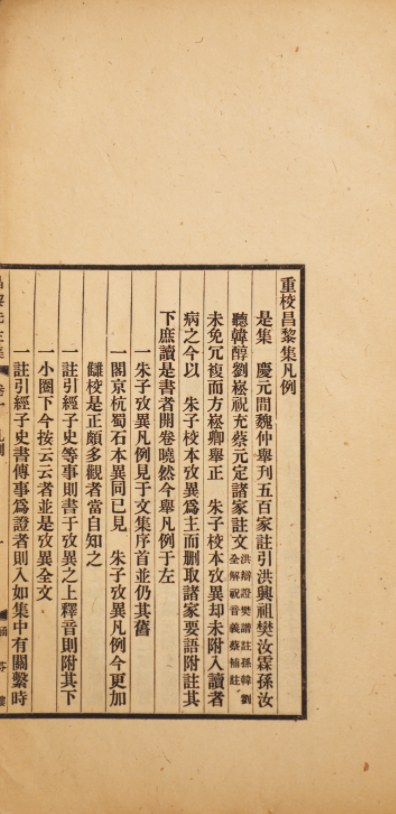 重校昌黎集凡例
是集　慶元間魏仲舉刊五百家註引洪興祖樊汝霖孫汝
聽韓醇劉崧祝充蔡元定諸家註文洪辯證樊譜註孫韓劉全解祝音義蔡補註
未免冗複而方崧卿舉正　朱子校本攷異却未附入讀者
病之今以　朱子校本攷異爲主而刪取諸家要語附註其
下庶讀是書者開卷曉然今舉凡例于左
一朱子攷異凡例見于文集序首並仍其舊
一閣京杭蜀石本異同已見　朱子攷異凡例今更加
讎校是正頗多觀者當自知之
一註引經子史等事則書于攷異之上釋音則附其下
一小圈下今按云云者並是攷異全文
一註引經子史書傳事爲證者則入如集中有關繫時